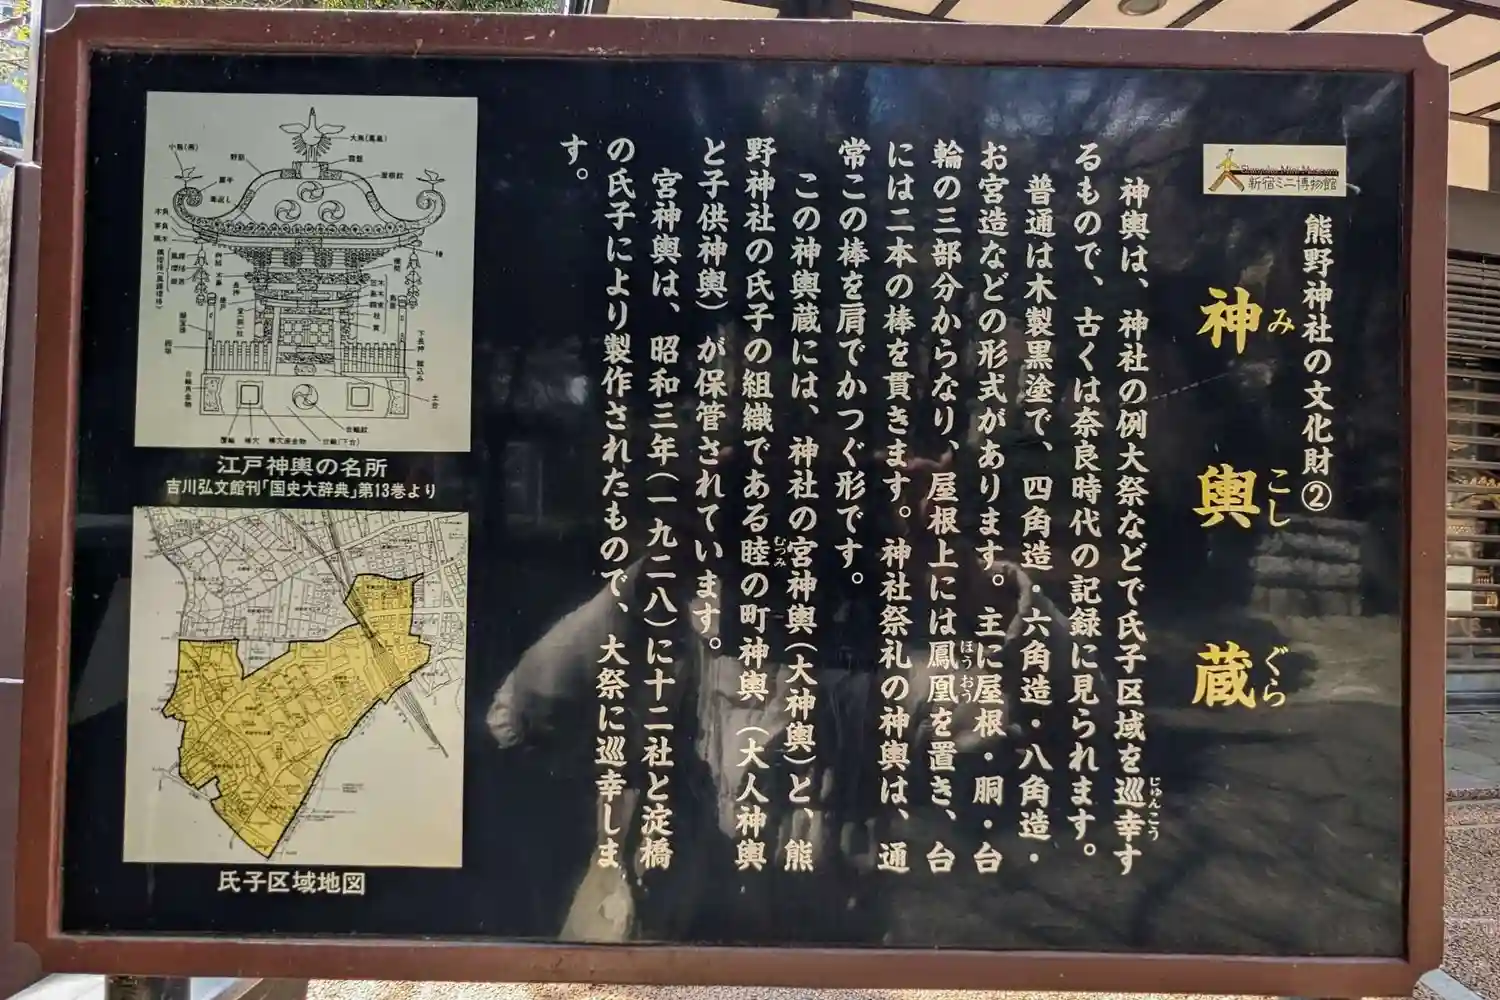 Shinjuku Mini Museum
新宿ミニ博物館
熊野神社の文化財②
神輿蔵
みこしぐら
神輿は、神社の例大祭などで氏子区域を巡幸す
じゅんこう
るもので、古くは奈良時代の記録に見られます。
普通は木製黒塗で、四角造・六角造・八角造・
お宮造などの形式があります。主に屋根・胴・台
輪の三部分からなり、屋根上には鳳凰を置き、台
ほうおう
には二本の棒を貫きます。神社祭礼の神輿は、通
常この棒を肩でかつぐ形です。
この神輿蔵には、神社の宮神輿(大神輿)と、熊
野神社の氏子の組織である睦の町神輿(大人神輿
むつみ
と子供神輿)が保管されています。
宮神輿は、昭和三年(一九二八)に十二社と淀橋
の氏子により製作されたもので、大祭に巡幸しま
す。
大鳥(鳳凰)
小鳥(燕)
野筋
露盤
屋根紋
蕨手
下長押
台輪紋
台輪(下台)
棒穴座金物
棒穴
江戸神輿の名所
吉川弘文館刊「国史大辞典」第13巻より
氏子区域地図